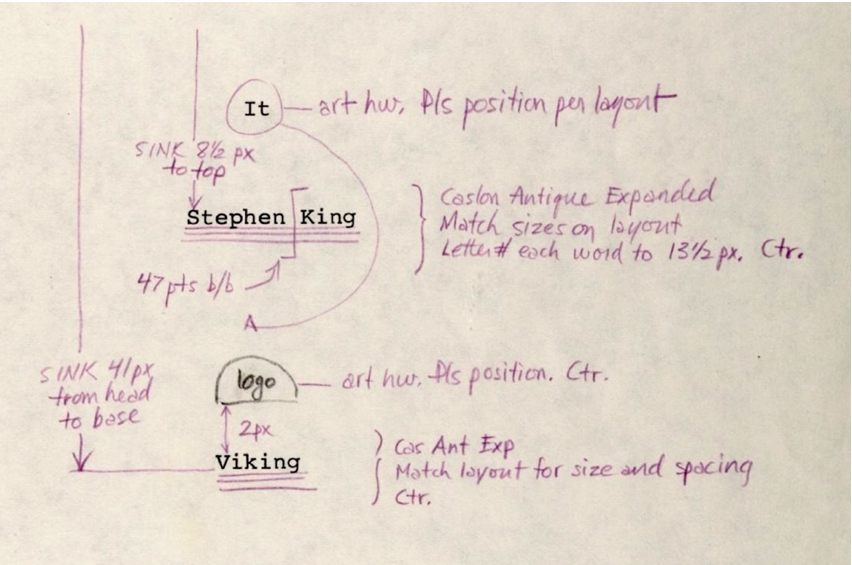 It — art hw. Pls position per layout
SINK 8½ px
to top
Stephen King
Caslon Antique Expanded
Match sizes on layout
Letter# each word to 13½ px. Ctr.
47 pts b/b
A
SINK 41px
from head
to base
logo — art hw. Pls position. Ctr.
2px
Viking
Cas Ant Exp
Match layout for size and spacing
Ctr.